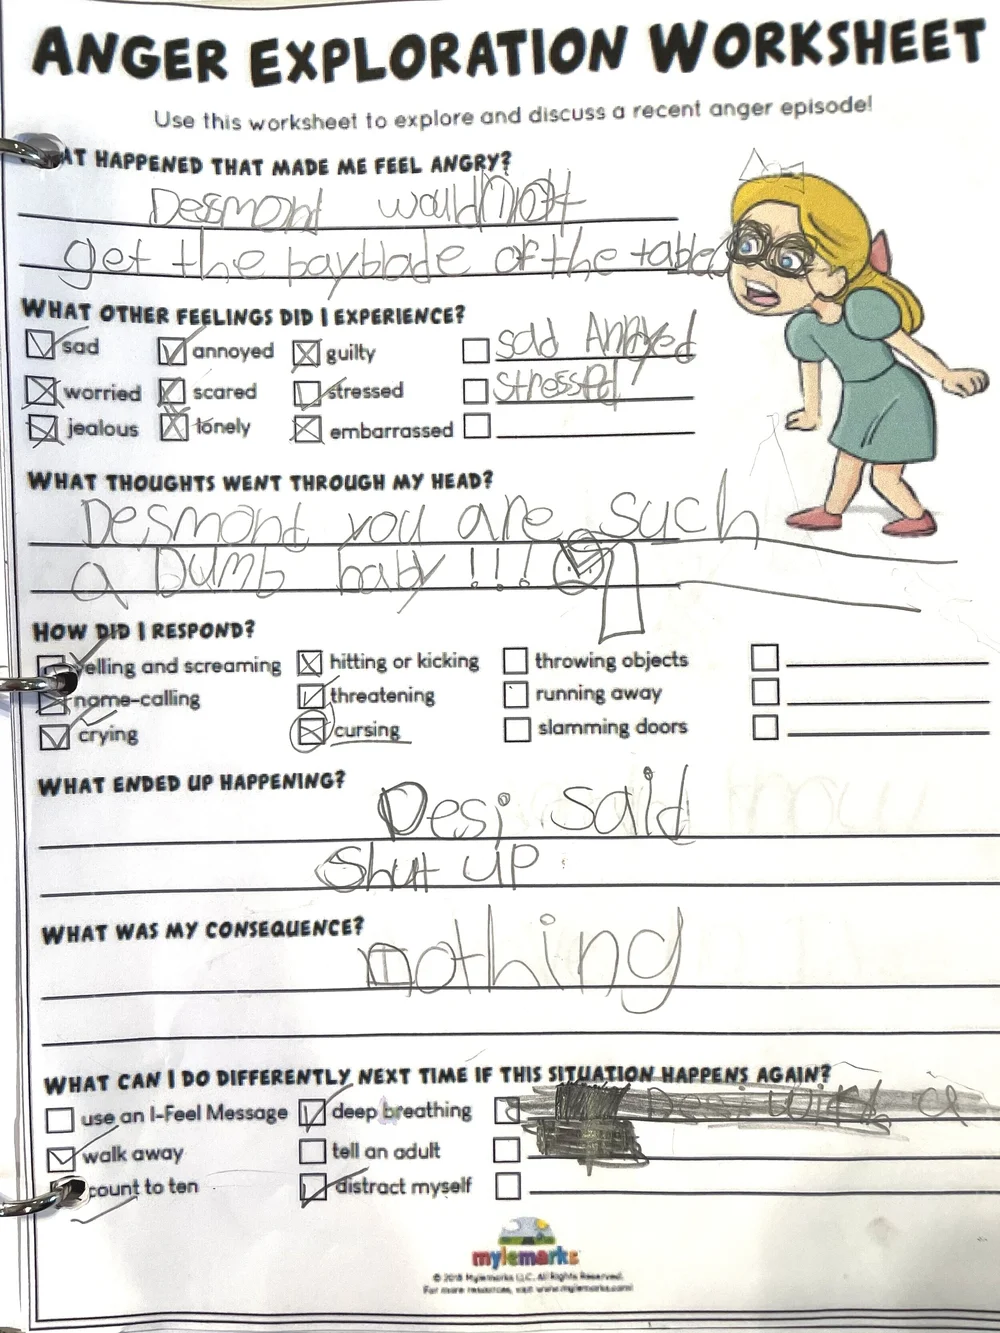 ANGER EXPLORATION WORKSHEET
Use this worksheet to explore and discuss a recent anger episode!
AT HAPPENED THAT MADE ME FEEL ANGRY?
Desmont would not
get the bayblade of the table
WHAT OTHER FEELINGS DID I EXPERIENCE?
sad annoyed guilty sad Annoyed
worried scared stressed Stressed
jealous lonely embarrassed
WHAT THOUGHTS WENT THROUGH MY HEAD?
Desmont you are such
a Dumb baby !!!
HOW DID I RESPOND?
yelling and screaming hitting or kicking throwing objects
name-calling threatening running away
crying cursing slamming doors
WHAT ENDED UP HAPPENING?
Desi said
Shut up
WHAT WAS MY CONSEQUENCE?
nothing
WHAT CAN I DO DIFFERENTLY NEXT TIME IF THIS SITUATION HAPPENS AGAIN?
use an I-Feel Message deep breathing Desi with a
walk away tell an adult
count to ten distract myself
mylemarks
© 2018 Mylemarks LLC. All Rights Reserved.
For more resources, visit www.mylemarks.com!